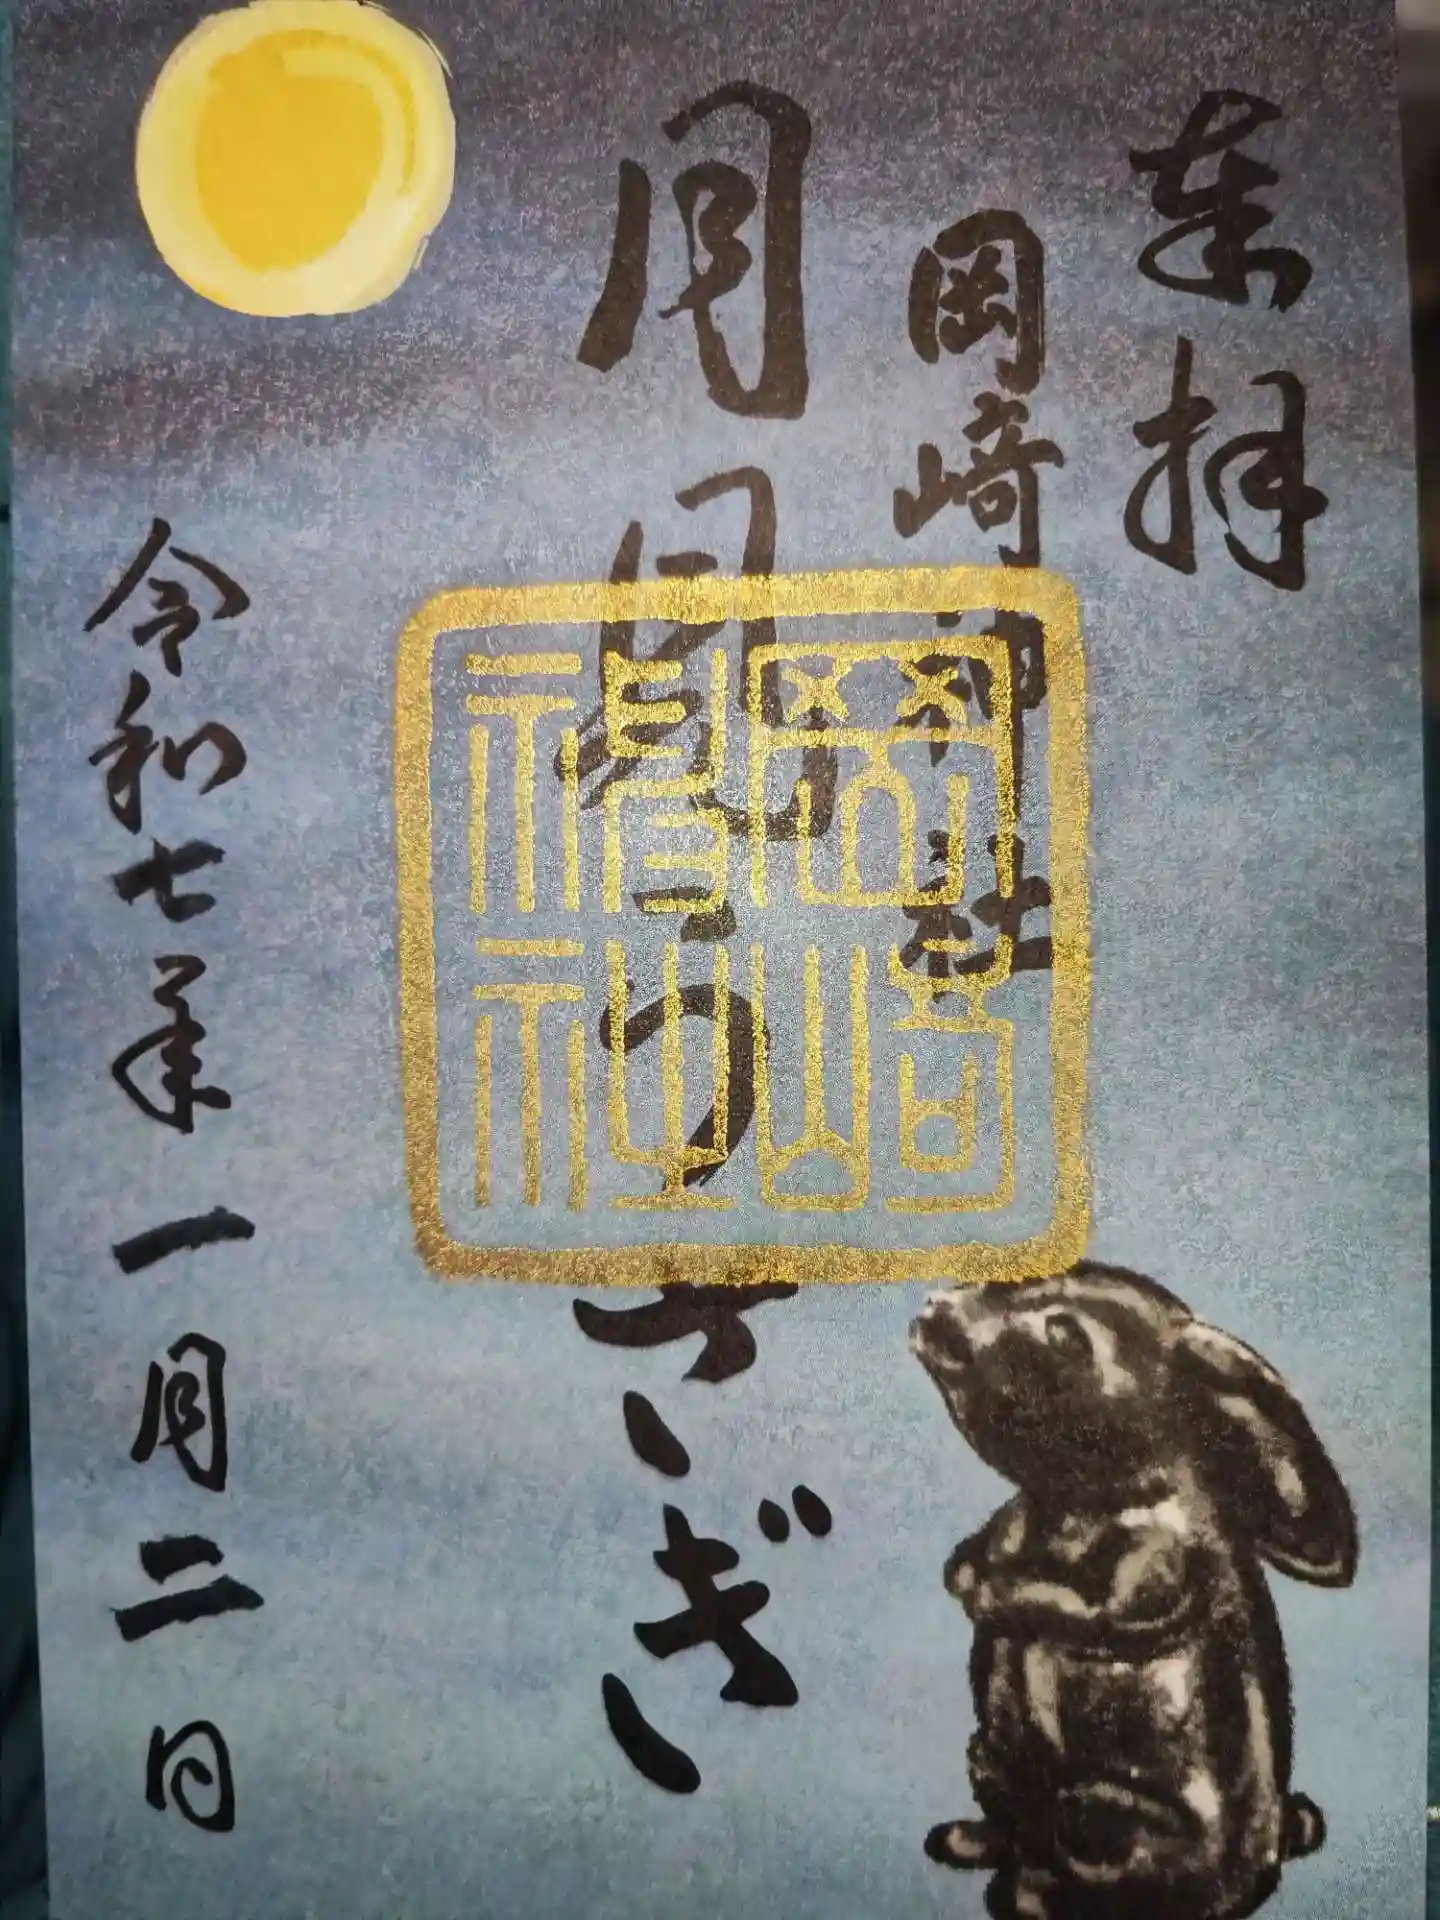 奉拝
岡崎神社
月見うさぎ
岡崎神社
令和七年一月二日